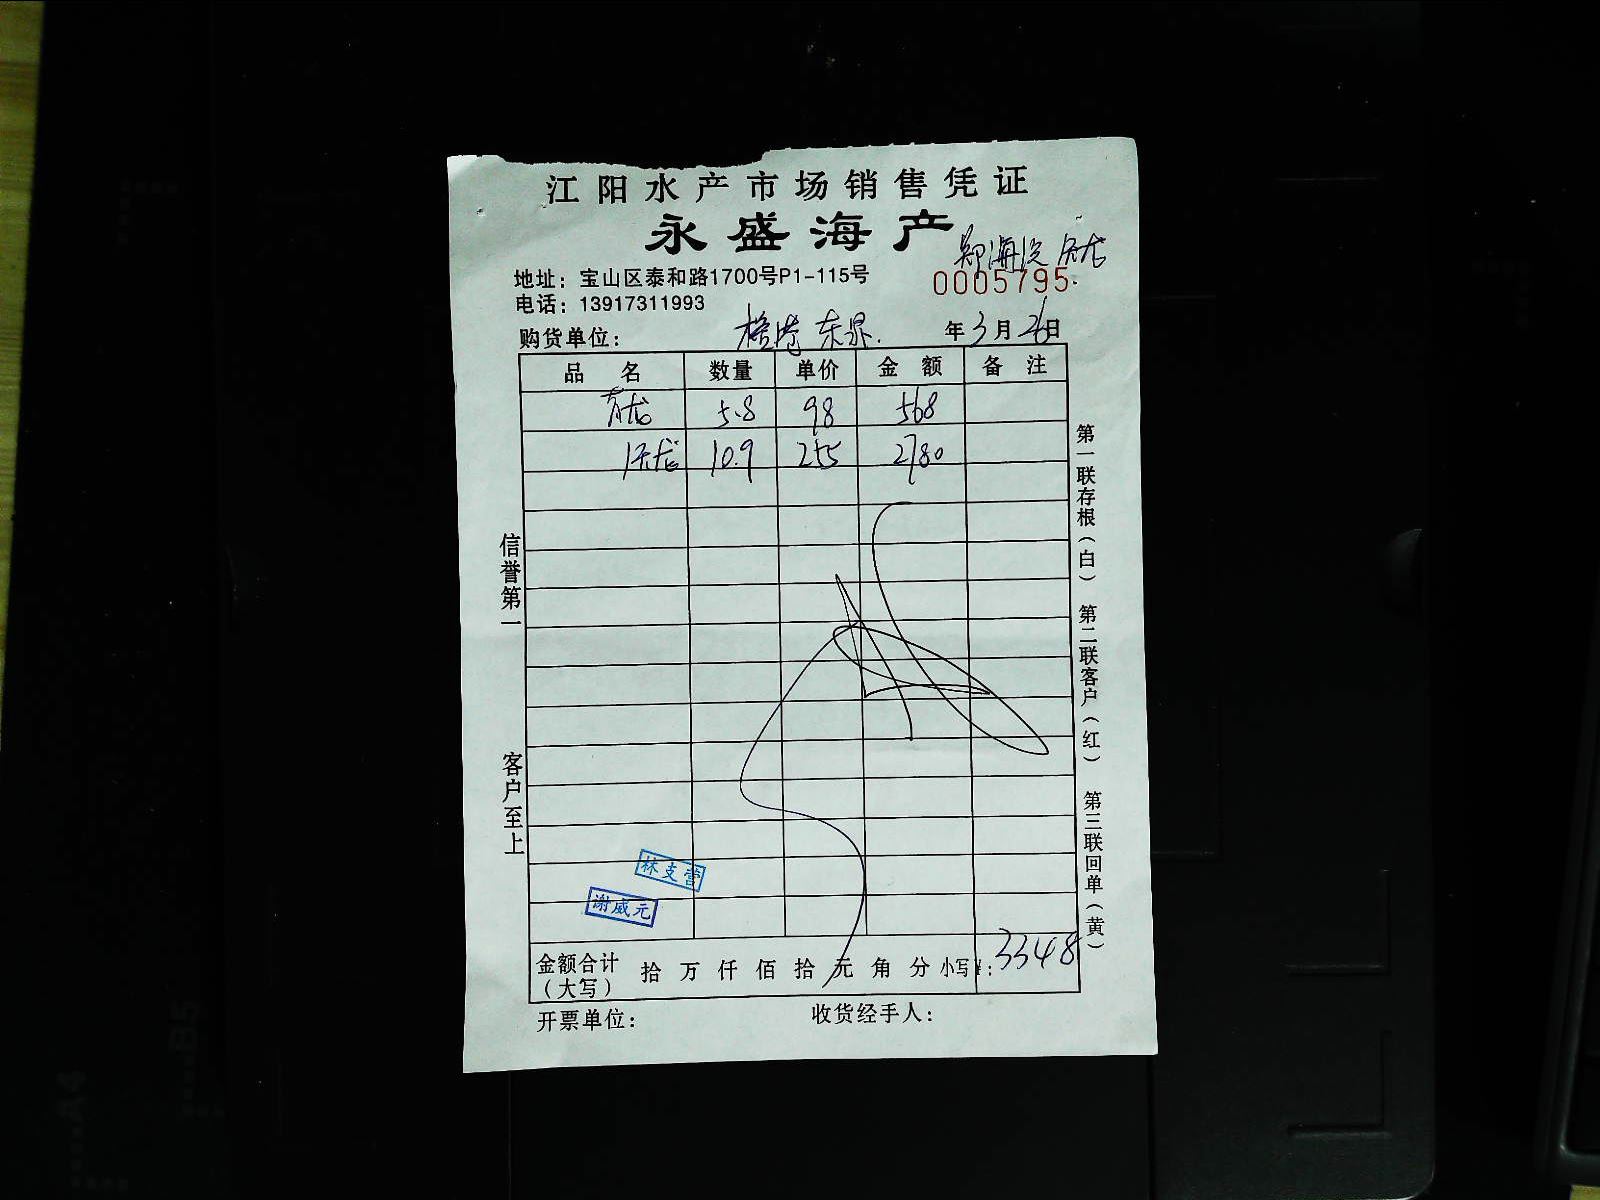 江阳水产市场销售凭证
永盛海产
郑海滨 虎龙
地址：宝山区泰和路1700号P1-115号
0005795
电话：13917311993
购货单位： 年3月26日
品 名 数量 单价 金 额 备 注
青龙 5.8 98 568
10.9 255 2780
信誉第一
客户至上
第一联存根（白） 第二联客户（红） 第三联回单（黄）
林支营
谢威元
金额合计（大写） 拾 万 仟 佰 拾 元 角 分 小写¥：3348
开票单位： 收货经手人：